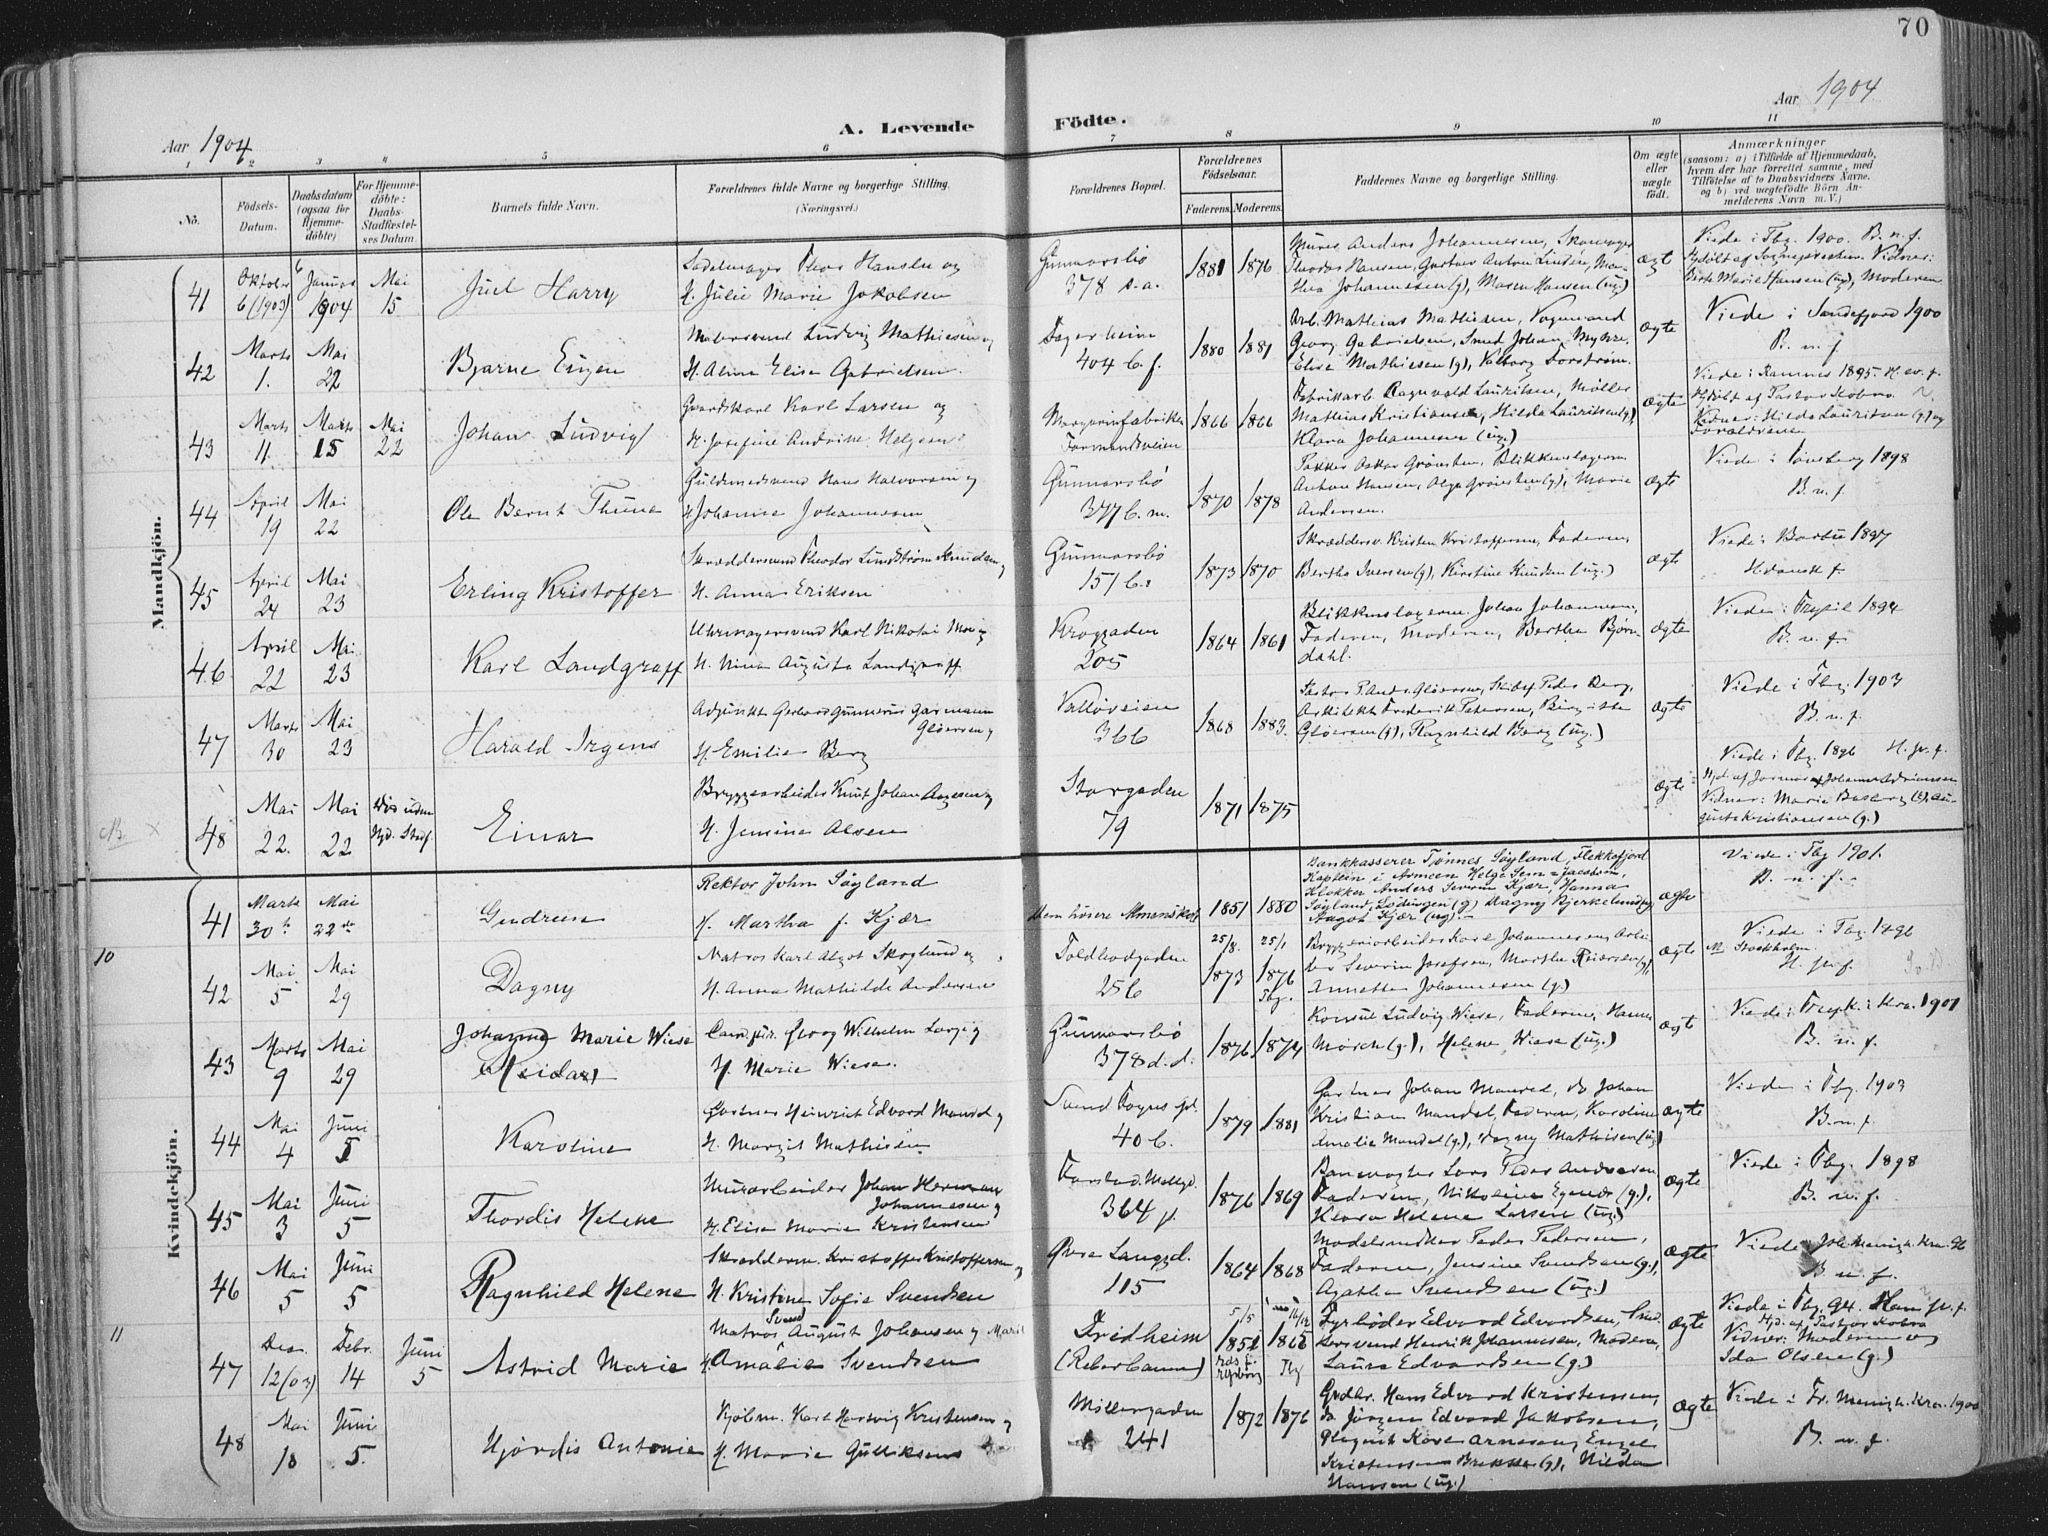 70
Aar 1904
Aar 1904
A. Levende Födte.
1 2 3 4 5 6 7 8 9 10 11
No.
Födsels-Datum.
Daabsdatum (ogsaa for Hjemmedöbte)
For Hjemmedöbte: Daabs-Stadfæstelses Datum.
Barnets fulde Navn.
Forældrenes fulde Navne og borgerlige Stilling. (Næringsvei.)
Forældrenes Bopæl.
Forældrenes Födselsaar.
Faderens. Moderens.
Faddernes Navne og borgerlige Stilling.
Om ægte eller uægte födt.
Anmærkninger
(saasom: a) i Tilfælde af Hjemmedaab, hvem der har forrettet samme, med Tilföielse af to Daabsvidners Navne, og b) ved uægtefödte Börn Anmelderens Navn m. V.)
Mandkjön.
41 Oktober 6 (1903) 6 Januar 1904 Mai 15 Juel Harry
Sadelmager Thor Hansen og H. Julie Marie Jakobsen
Gunnarsbö 378 s.a. 1881 1876
Murer Anders Johannesen, Skomager
Theodor Hansen, Gustav Anton Lindin, Mathea Johannesen (g), Maren Hansen (ug.)
ægt
Viede i Tbg. 1900. B. n. f.
Hjdöbt af Sognejordm. Vidner: Berte Marie Hansen (ug), Moderen
42 Marts 1. Mai 22 Bjarne Eugen
Malersvend Ludvig Mathiesen og H. Alma Elise Gabrielsen.
Fagerheim 404 b.f. 1880 1881
Arb. Mathias Mathiesen, Vognmand
Georg Gabrielsen, Smed Johan Myhre,
Elise Mathiesen (g), Valborg Forström
ægte
Viede i Sandefjord 1900
B. n. f
43 Marts 11. Marts 15 Mai 22 Johan Ludvig
Gaardskarl Karl Larsen og
H. Josefine Andrine Helgesen
Margarinfabrikken Farmandsveien 1866 1866
Fabrikarb. Ragnvald Lauritsen, Möller
Mathias Kristiansen, Hilda Lauritsen (g),
Klara Johannesen (ug.)
ægte
Viede i Ramnes 1895 H. ev. f.
Hjdöbt af Pastor Kobro
Vidner: Hilda Lauritsen (g.) og Forældrene
44 April 19 Mai 22 Ole Bernt Thune
Guldsmedsvend Hans Halvorsen og
H. Johanne Johannesen
Gunnarsbö 377 b.m. 1870 1878
Pakker Oskar Grönsten, Blikkenslagerm.
Anton Hansen, Olga Grönsten (g), Marie
Andersen.
ægt
Viede i Tönsberg 1898
B. n. f.
45 April 24 Mai 23 Erling Kristoffer
Skræddersvend Theodor Lindström Knudsen og
H. Anna Eriksen
Gunnarsbö 151 b. 1873 1870
Skrædders. Kristen Kristoffersen, Faderen,
Bertha Iversen (g), Kirstine Knudsen (ug.)
ægt
Viede i Barbu 1897
H. dansk f.
46 April 22 Mai 23 Karl Landgraff
Uhrmagersvend Karl Nikolai Moe og
H. Nina Augusta Landgraff
Kroggaden 205 1864 1861
Blikkenslagerm. Johan Johannesen,
Faderen, Moderen, Bertha Bjørndahl.
ægte
Viede i Trysil 1894
B. n. f.
47 Marts 30 Mai 23 Harald Irgens
Adjunkt Gerhard Gunnerus Garmann Gløersen og
H. Emilie Berg
Vallöveien 366 1868 1883.
Arkitekt Frederik Petersen, Birgitte
Gløersen (g), Ragnhild Berg (ug.)
ægte
Viede i Tbg. 1903
B. n. f.
48 Mai 22. Mai 22 Einar
Bryggearbeider Knut Johan Aagesen og
H. Jensine Olsen
Storgaden 79 1871 1875
ægte
Viede i Tbg. 1896 H. pr. f.
Vidner: Marie Basberg (g),
Kristiansen (g.)
Kvindekjön.
41 Marts 30te Mai 22de Gudrun
Rektor John Söyland
H. Martha f. Kjær
Den höiere Almenskole 1851 1880
Bankkasserer Tönnes Söyland, Flekkefjord
Kaptein i Armeen Helge Sem-Jacobsen,
Klokker Anders Severin Kjær, Hanna
Söyland, Lödingen (g) Dagny Bjerkelund (g)
Aagot Kjær (ug)
ægte
Viede i Tbg 1901.
B. n. f.
10
42 Mai 5 Mai 29 Dagny
Matros Karl Algot Skoglund og
H. Anna Mathilde Andersen
Toldbodgaden 25 b 25/8. 1873 25/1 1876 Tbg.
Bryggeriarbeider Karl Johannesen, Arbeider Severin Josefsen, Marthe Reiersen (g),
Annette Johannesen (g)
ægte
Viede i Tbg. 1896
M. Stockholm.
H. pr. f.
43 Marts 9 Mai 29 Johanne Marie Wiese Reidar
Cand. jur. Georg Wilhelm Lorge og
H. Marie Wiese
Gunnarsbö 378 d.d. 1876 1874
Konsul Ludvig Wiese, Faderen, Hanna
Mørch (g.), Helene Wiese (ug.)
ægt
Viede i Trefk. i Kra. 1901
B. n. f.
44 Mai 4 Juni 5 Karoline
Gartner Heinrich Edvard Mandel og
H. Margit Mathisen
Svend Foyns gd. 40 b. 1879 1881
Gartner Johan Mandel, do Johan
Kristian Mandel, Faderen, Karoline
Amalie Mandel (g.), Dagny Mathisen (ug)
ægte
Viede i Tbg. 1903
B. n. f.
45 Mai 3 Juni 5 Thordis Helene
Murarbeider Johan Herman Johannesen og
H. Elise Marie Kristensen
Farstad. Möllegd. 364 p. 1876 1869
Banevogter Lars Peder Andersen,
Faderen, Nikoline Egenæs (g.),
Klara Helene Larsen (ug.)
ægte
Viede i Tbg. 1898
B. n. f.
46 Mai 5 Juni 5 Ragnhild Helene
Skrædderm. Kristoffer Kristoffersen og
H. Kristine Sofie Svendsen
Øvre Langgd. 115 1864 1868
Modelsnedker Peder Pedersen,
Faderen, Jensine Svendsen (g.),
Agathe Svendsen (ug.)
ægte
B. n. f.
11
47 Des. 12 (03) Febr. 14 Juni 5 Astrid Marie
Matros Svend August Johansen og
H. Amalie Marie Svendsen
Fridheim (Reberbanen) 5/5 1851 16/12 1865 Tbg
Fyrböder Edvard Edvardsen, Snedkersvend Henrik Johannesen, Moderen,
Laura Edvardsen (g.)
ægte
Viede i Tbg. 94.
Hjd. af Pastor Kobro
Vidner: Moderen og
Ida Olsen (g.)
48 Mai 10 Juni 5. Hjördis Antonie
Kjöbm. Karl Hartvig Kristensen og
H. Marie Gulliksen
Möllergaden 241 1872 1876
Gudbr. Hans Edvard Kristensen,
do Jörgen Edvard Jakobsen,
Kristensen Brekke (g), Hilda
Hansen (ug.)
ægte
Viede i Fr. Menigh. Kra. 1900
B. n. f.